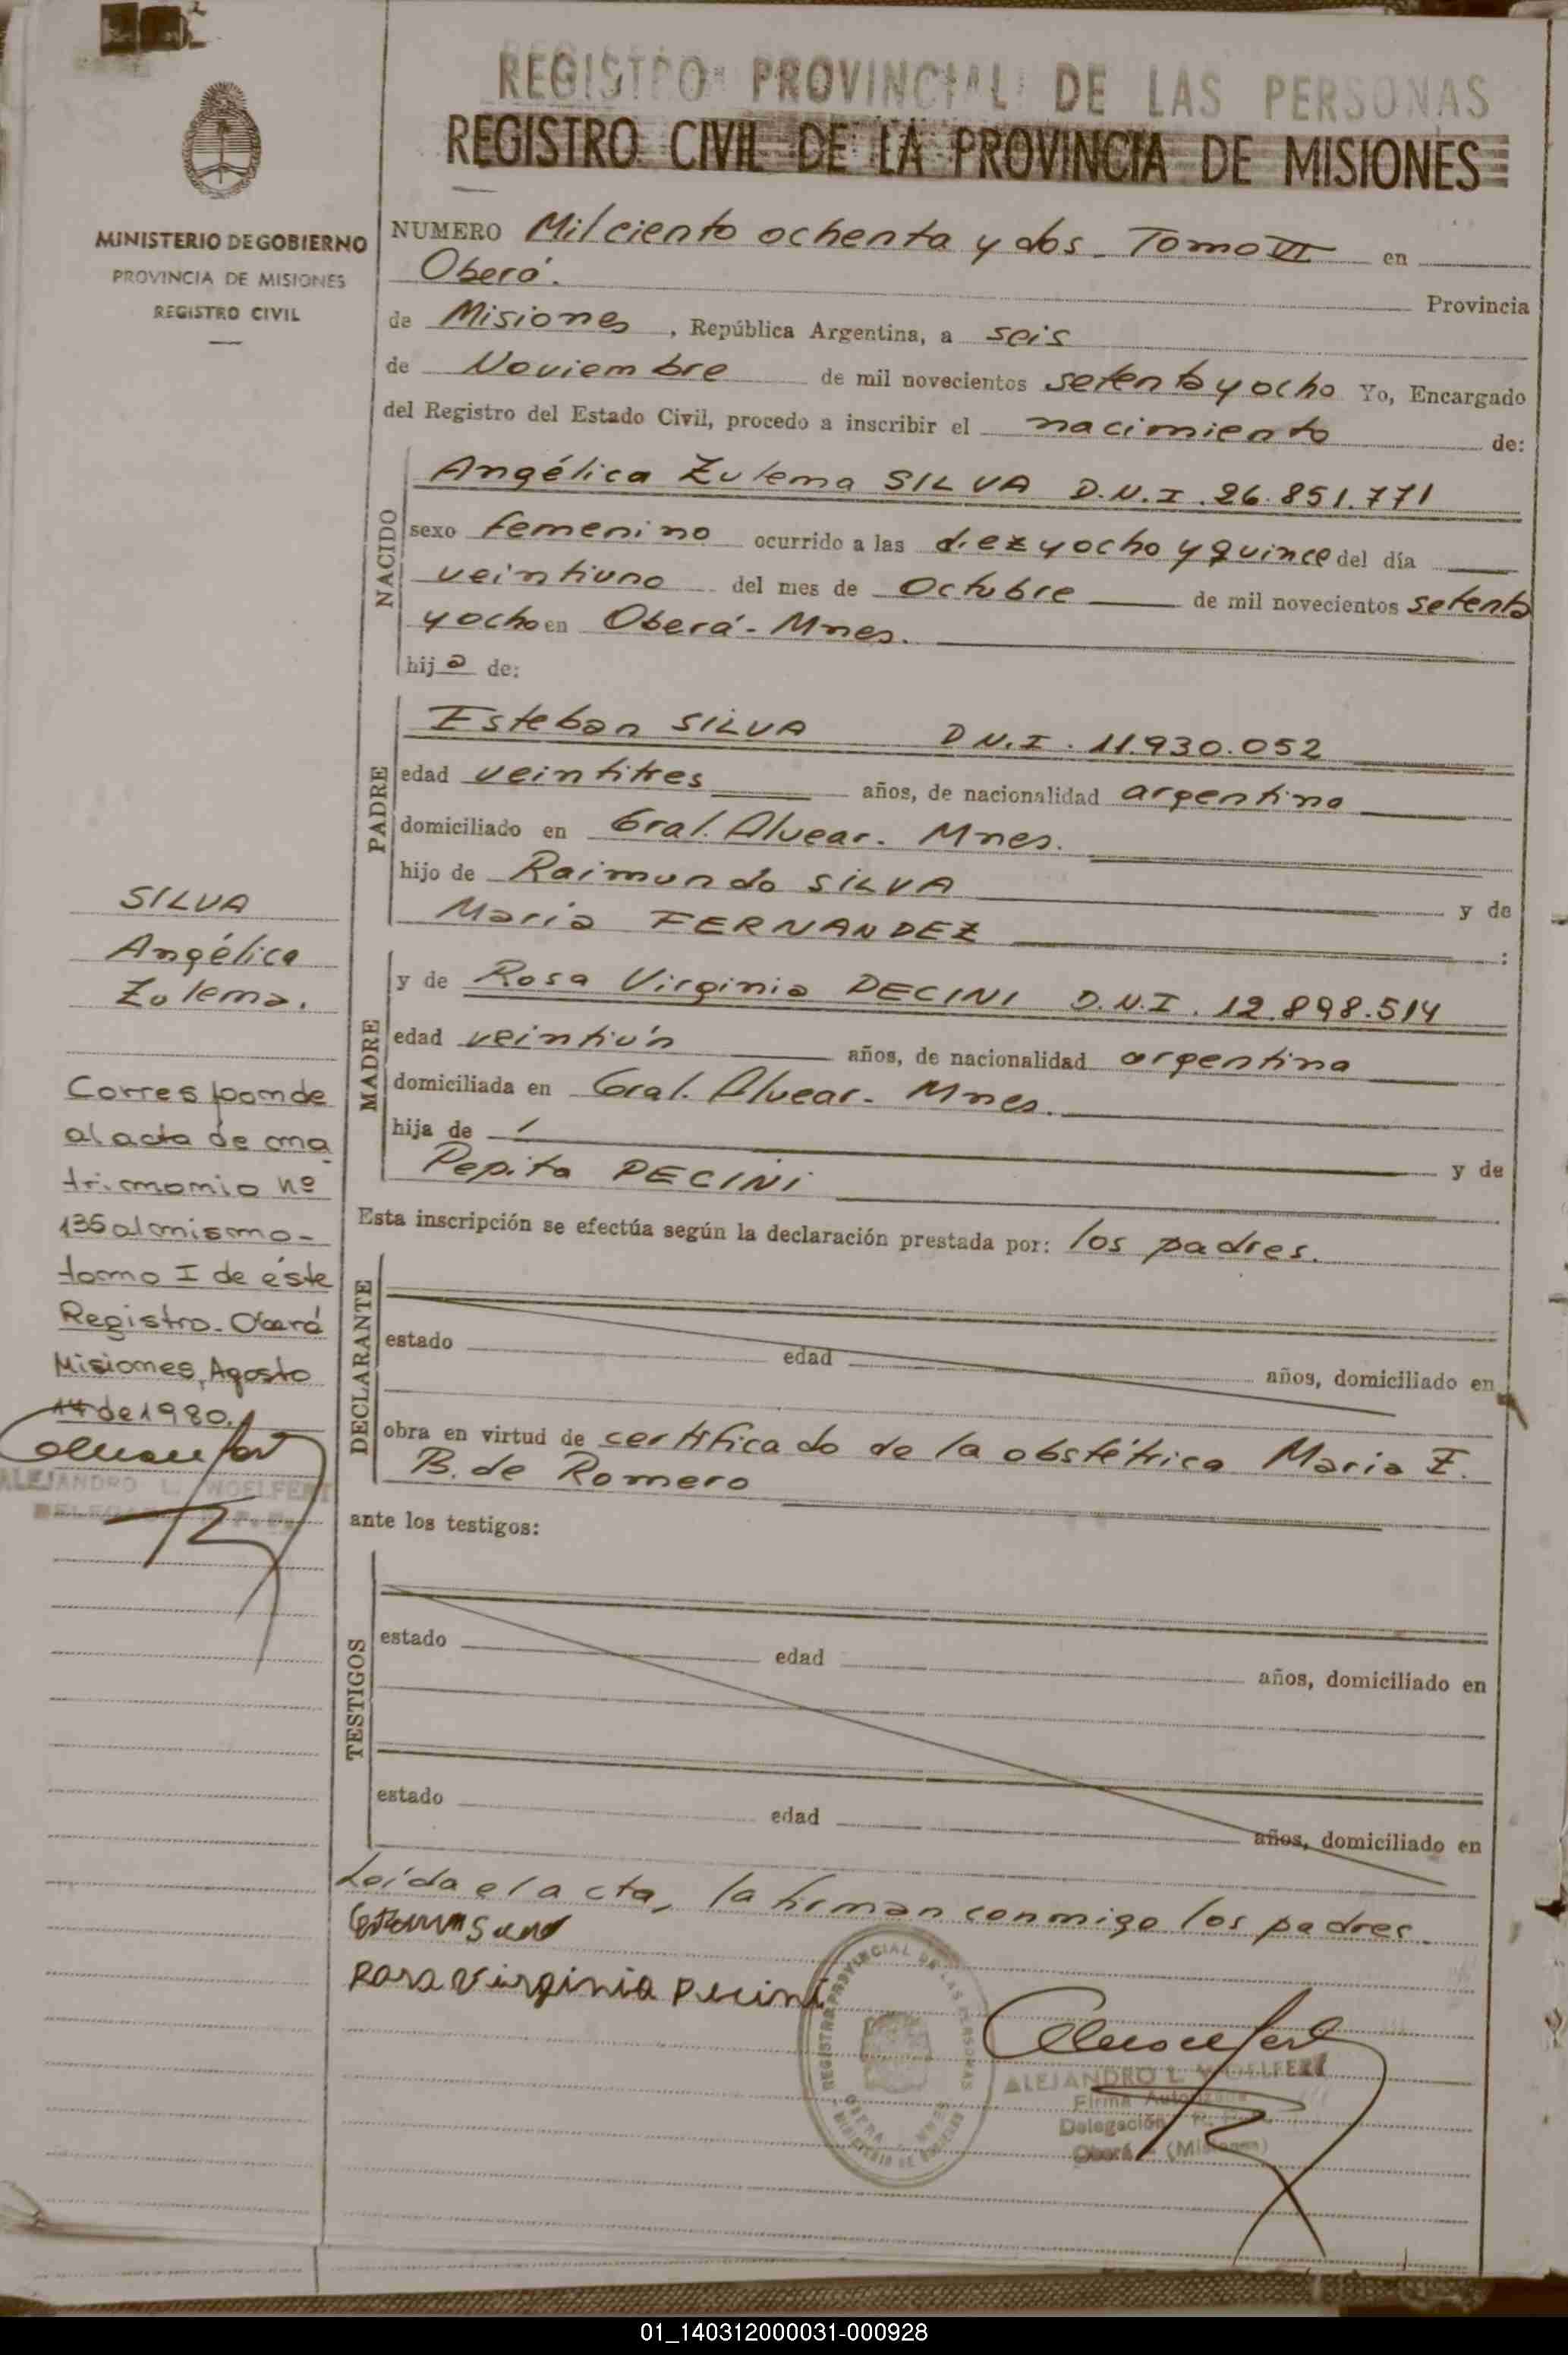 REGISTRO PROVINCIAL DE LAS PERSONAS
REGISTRO CIVIL DE LA PROVINCIA DE MISIONES
MINISTERIO DE GOBIERNO
PROVINCIA DE MISIONES
REGISTRO CIVIL
NUMERO Mil ciento ochenta y dos - Tomo VI en
Oberá. Provincia
de Misiones, República Argentina, a seis
de Noviembre de mil novecientos setenta y ocho Yo, Encargado
del Registro del Estado Civil, procedo a inscribir el nacimiento de:
NACIDO
Angélica Zulema SILVA D.N.I. 26.851.771
sexo femenino ocurrido a las diez y ocho y quince del día
veintiuno del mes de Octubre de mil novecientos setenta
y ocho en Oberá - Mnes.
hija de:
PADRE
Esteban SILVA D.N.I. 11.930.052
edad veintitres años, de nacionalidad argentina
domiciliado en Gral. Alvear - Mnes.
hijo de Raimundo SILVA y de
Maria FERNANDEZ :
MADRE
y de Rosa Virginia DECINI D.N.I. 12.898.514
edad veintiún años, de nacionalidad argentina
domiciliada en Gral. Alvear - Mnes.
hija de / y de
Pepita PECINI
Esta inscripción se efectúa según la declaración prestada por: los padres.
DECLARANTE
estado edad años, domiciliado en
obra en virtud de certificado de la obstétrica Maria E.
B. de Romero
ante los testigos:
TESTIGOS
estado edad años, domiciliado en
estado edad años, domiciliado en
Leída el acta, la firman conmigo los padres.
Rosa Virginia Pecini
REGISTRO PROVINCIAL DE LAS PERSONAS
ALEJANDRO L. WOELFERT
Firma Autorizada
Delegación R. P.
Oberá - (Misiones)
SILVA
Angélica
Zulema.
Corresponde
al acta de ma
trimonio nº
135 al mismo -
tomo I de éste
Registro. Oberá
Misiones, Agosto
14 de 1980.
ALEJANDRO L. WOELFERT
01_140312000031-000928